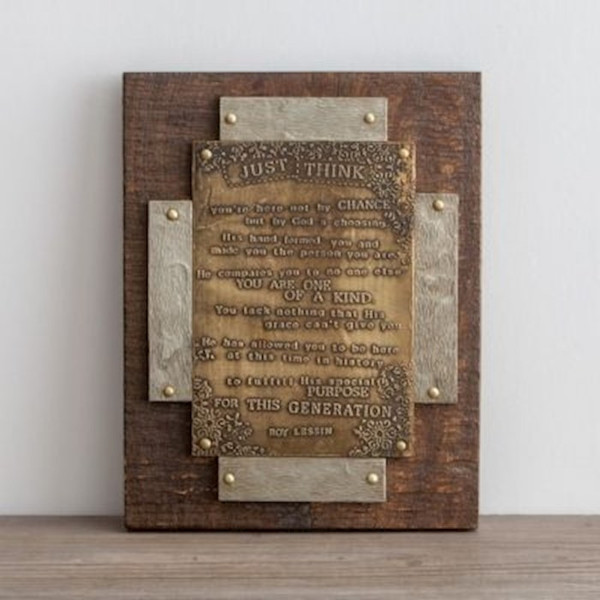 JUST THINK
you're here not by CHANCE
but by God's choosing
His hand formed you and
made you the person you are.
He compares you to no one else
YOU ARE ONE
OF A KIND
You lack nothing that His
grace can't give you
He has allowed you to be here
at this time in history
to fulfill His special
PURPOSE
FOR THIS GENERATION
ROY LESSIN